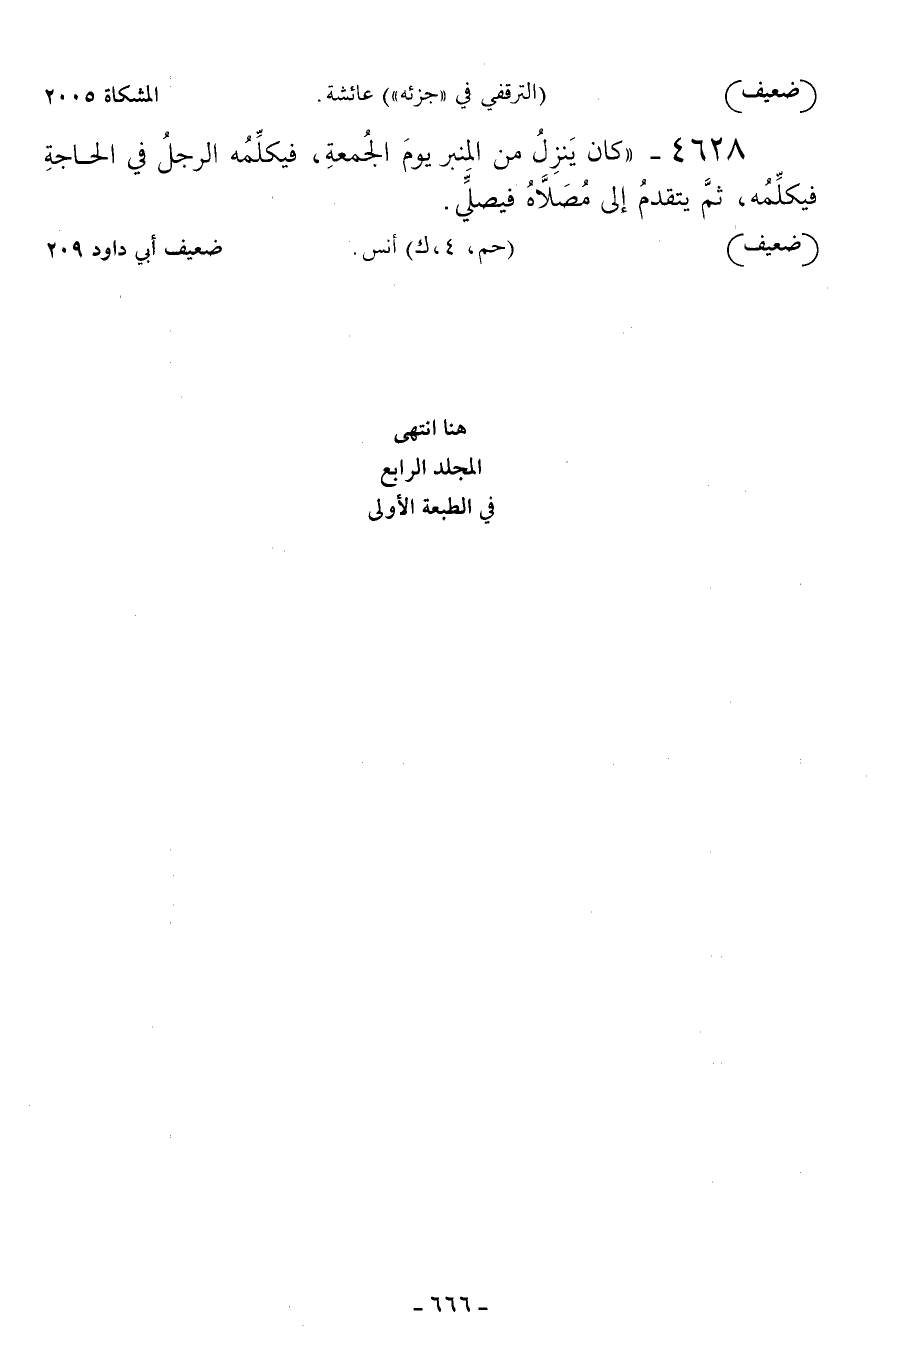 (ضعيف) (الترقفي في «جزئه») عائشة. المشكاة ٢٠٠٥
٤٦٢٨ ـ «كان يَنزِلُ من المِنبر يومَ الجُمعةِ، فيكلِّمُه الرجلُ في الحاجةِ
فيكلِّمُه، ثمَّ يتقدمُ إلى مُصَلَّاهُ فيصلِّي.
(ضعيف) (حم، ٤،ك) أنس. ضعيف أبي داود ٢٠٩
هنا انتهى
المجلد الرابع
في الطبعة الأولى
ـ ٦٦٦ ـ